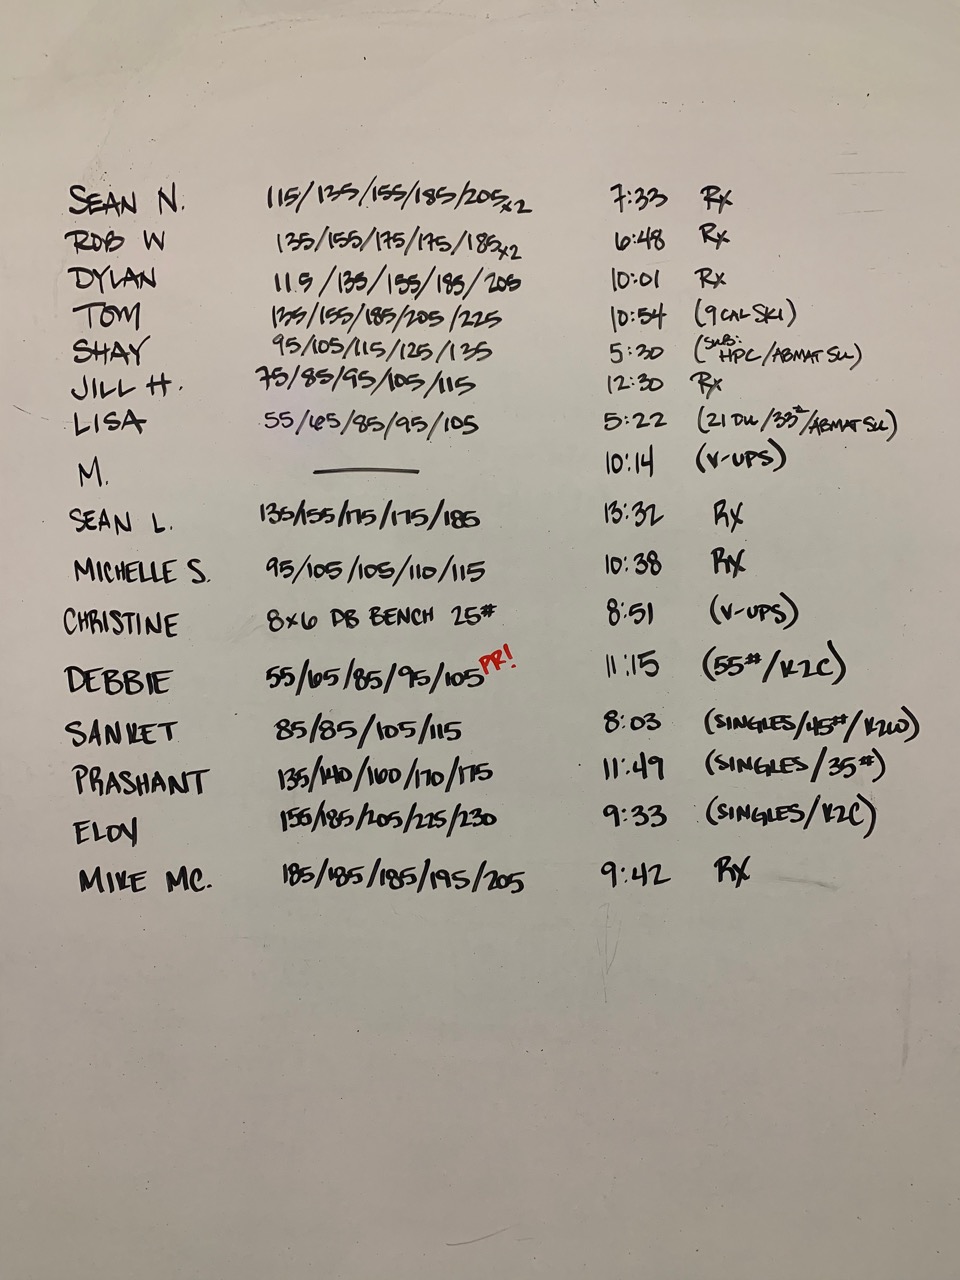 SEAN N. 115/135/155/185/205x2 7:33 Rx
ROB W 135/155/175/175/185x2 6:48 Rx
DYLAN 115/135/155/185/205 10:01 Rx
TOM 135/155/185/205/225 10:54 (9 CAL SKI)
SHAY 95/105/115/125/135 5:30 (SUB: HPC/ABMAT SU)
JILL H. 75/85/95/105/115 12:30 Rx
LISA 55/65/85/95/105 5:22 (21 DU/33#/ABMAT SU)
M. 10:14 (V-UPS)
SEAN L. 135/155/175/175/185 13:32 RX
MICHELLE S. 95/105/105/110/115 10:38 RX
CHRISTINE 8x6 DB BENCH 25# 8:51 (V-UPS)
DEBBIE 55/65/85/95/105 PR! 11:15 (55#/K2C)
SANKET 85/85/105/115 8:03 (SINGLES/45#/K2W)
PRASHANT 135/140/160/170/175 11:49 (SINGLES/35#)
ELOY 155/185/205/225/230 9:33 (SINGLES/K2C)
MIKE MC. 185/185/185/195/205 9:42 RX